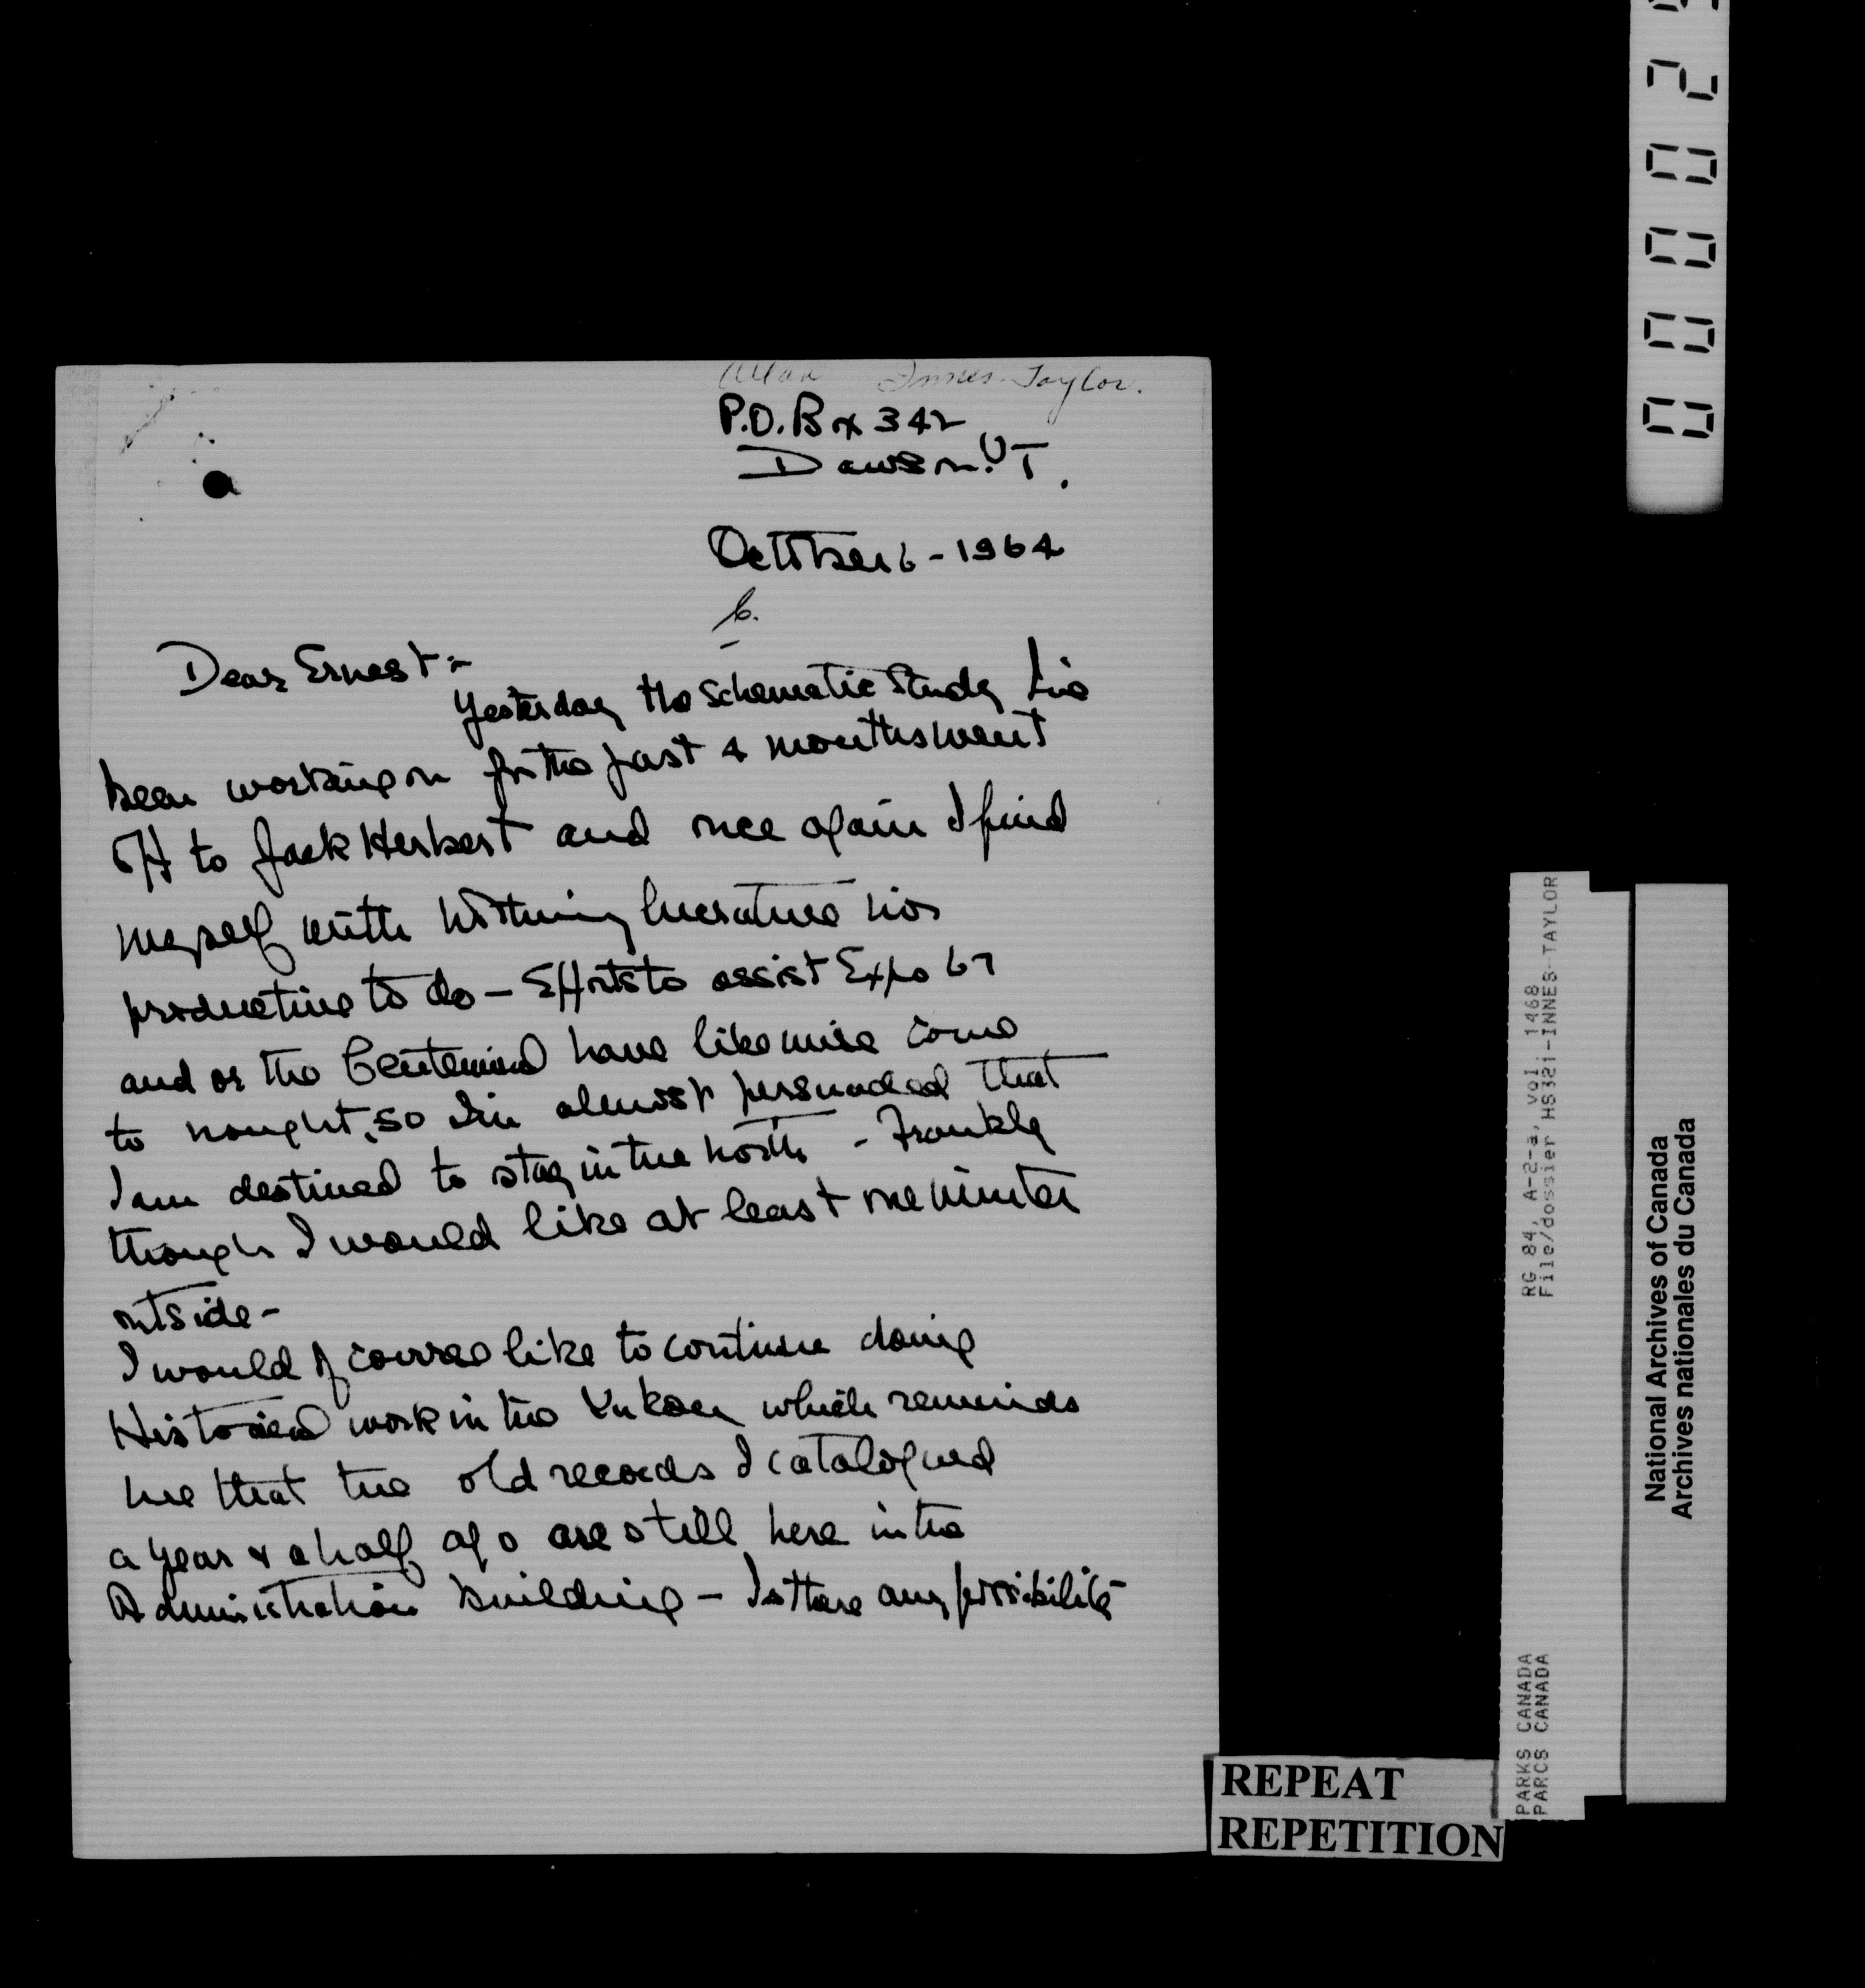 Allan Innes-Taylor.
P.O. Box 342
Dawson. Y T.
October 6 - 1964
Dear Ernest :-
Yesterday the Schematic Study I've
been working on for the past 4 months went
off to Jack Herbert and once again I find
myself with nothing lucrative nor
productive to do - Efforts to assist Expo 67
and or the Centennial have likewise come
to nought, so I'm almost persuaded that
I am destined to stay in the north - Frankly
though I would like at least one winter
outside -
I would of course like to continue doing
Historical work in the Yukon which reminds
me that the old records I catalogued
a year & a half ago are still here in the
Administration building - Is there any possibility
REPEAT
REPETITION
PARKS CANADA
PARCS CANADA
RG 84, A-2-a, vol. 1468
File/dossier HS321-INNES-TAYLOR
National Archives of Canada
Archives nationales du Canada